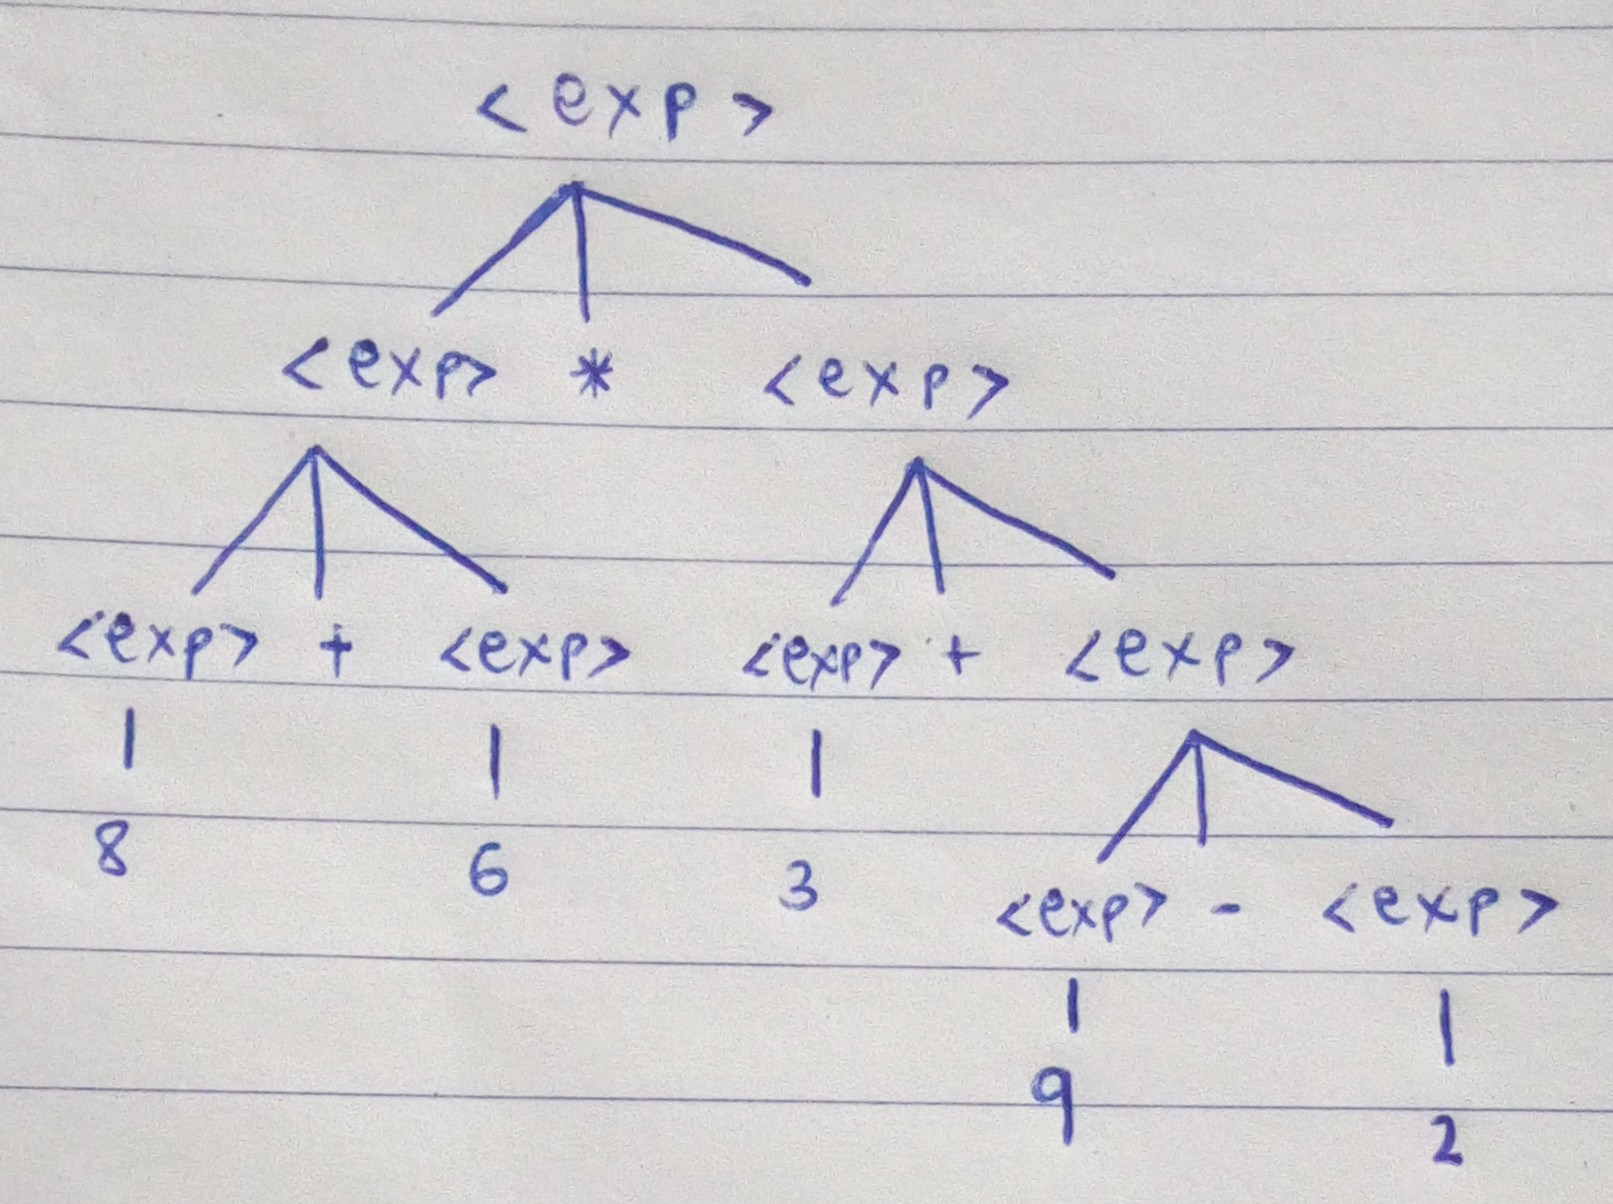 <exp>
<exp> * <exp>
<exp> + <exp> <exp> + <exp>
8 6 3
<exp> - <exp>
9 2